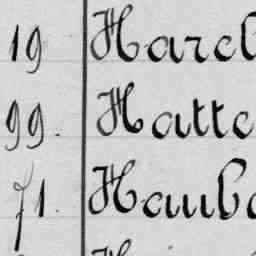 19 Harel
99. Hatte
71. Hauba